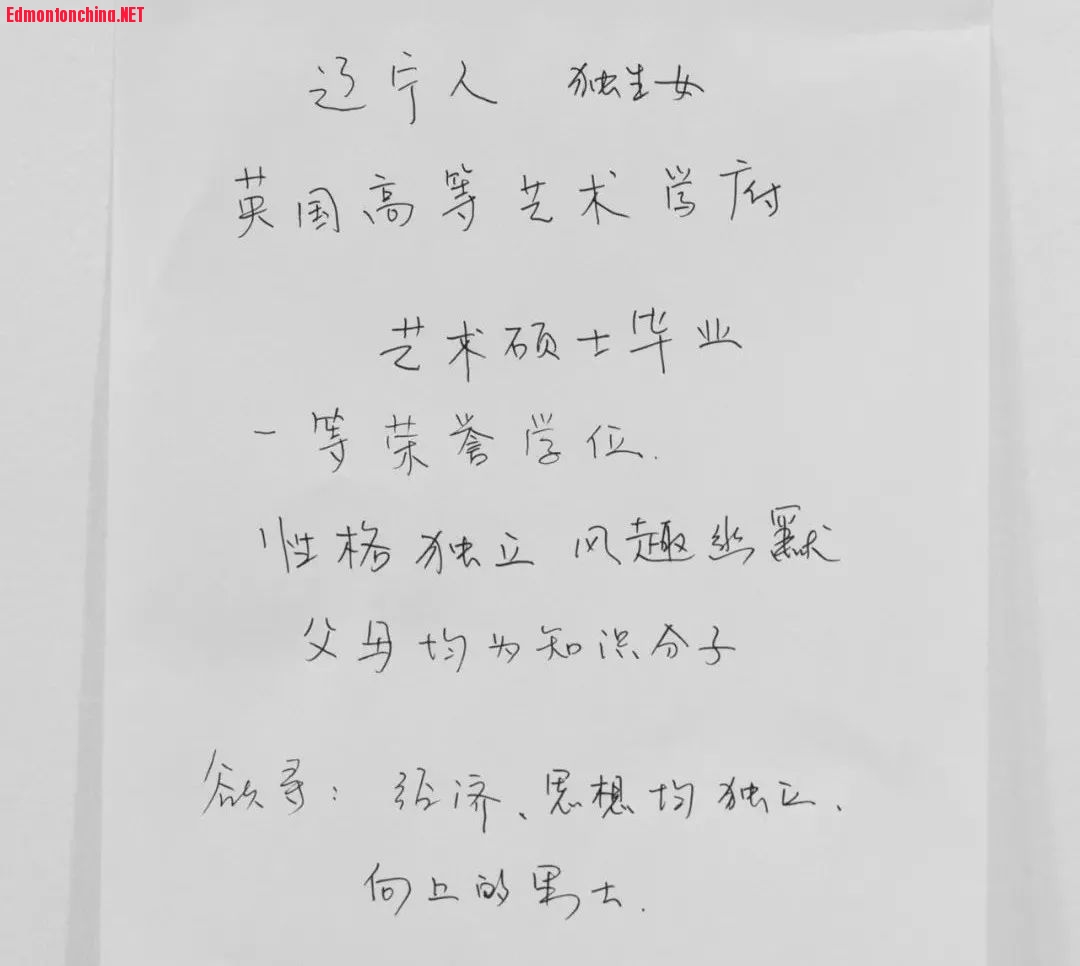 Edmontonchina.NET
辽宁人 独生女
英国高等艺术学府
艺术硕士毕业
一等荣誉学位.
性格独立 风趣幽默
父母均为知识分子
欲寻：经济、思想均独立、
向上的男士.